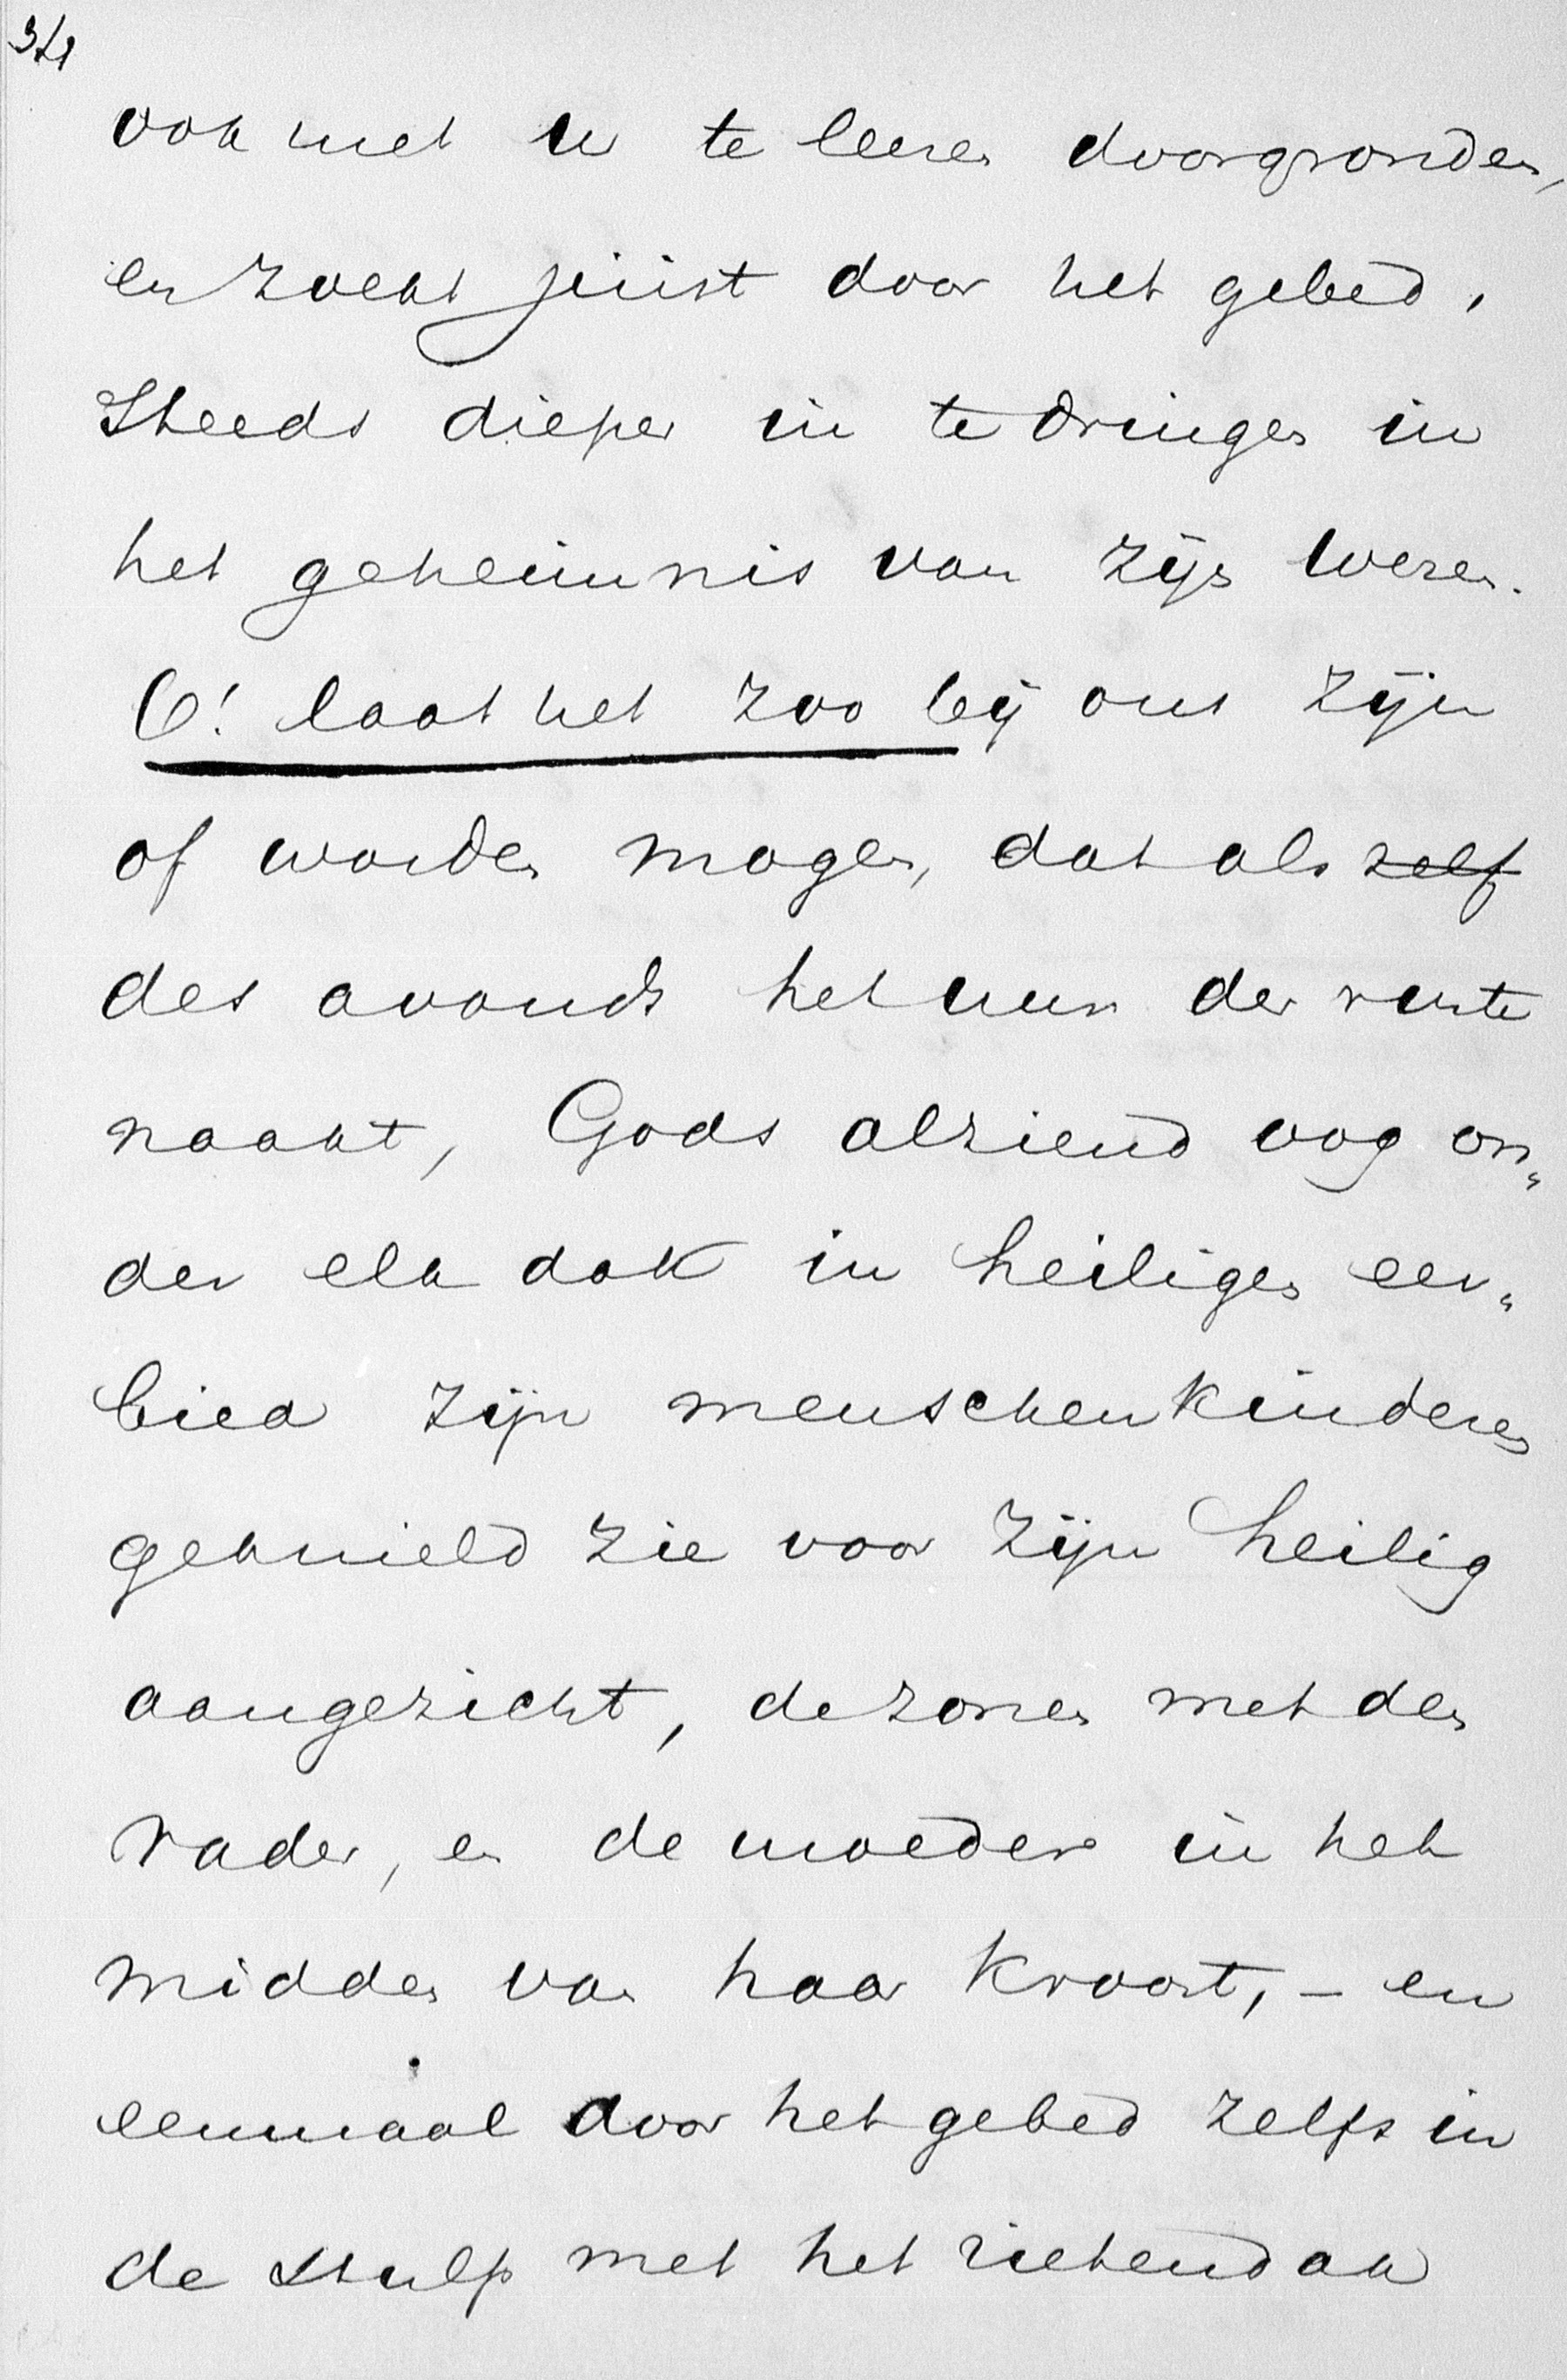 ook met u te leeren doorgronden,
en zoekt juist door het gebed,
steeds dieper in te dringen in
het geheimnis van zijn wezen.
O! laat het zoo bij ons zijn
of worden mogen, dat als zelf
des avonds het uur der ruste
naakt, Gods alziend oog on„
der elk dak in heiligen eer„
bied zijn menschenkinderen
geknield zie voor zijn heilig
aangezicht, de zonen met den
vader, en de moeder in het
midden van haar kroost, - en
eenmaal door het gebed zelfs in
de stulp met het rietendak